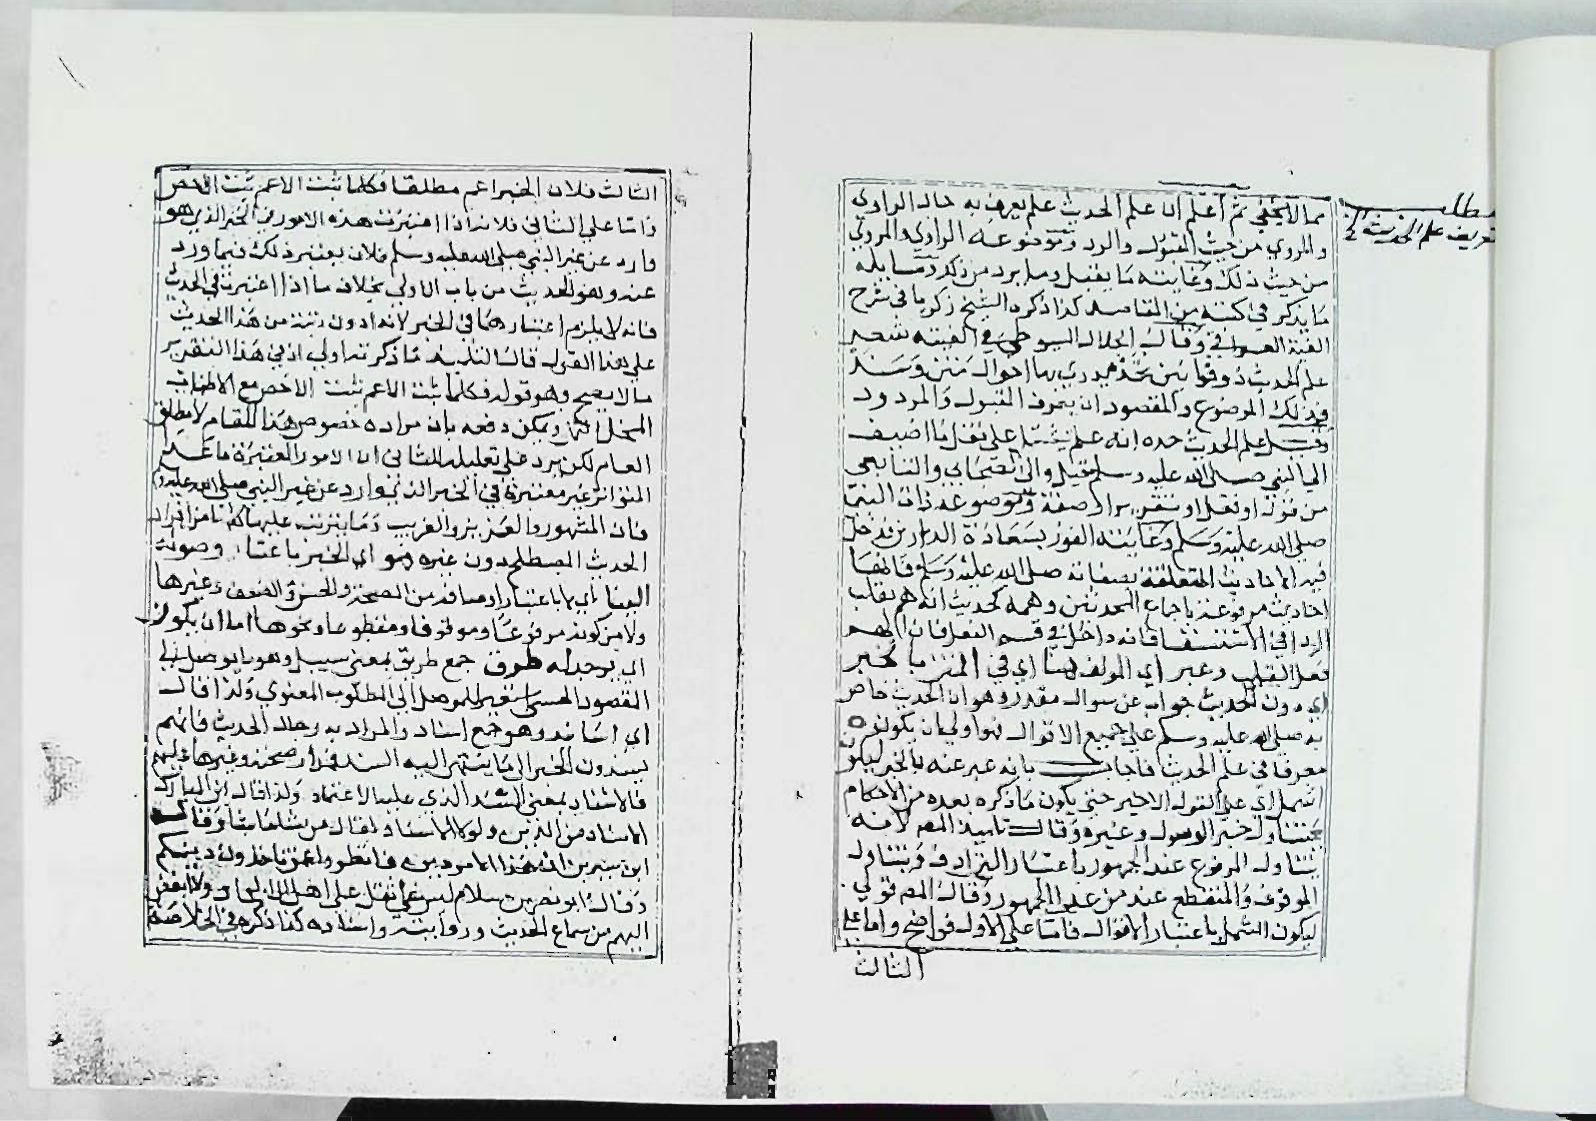 مما لا يخفى ثم اعلم ان علم الحديث علم يعرف به حال الراوي
والمروي من حيث القبول والرد وموضوعه الراوي والمروي
من حيث ذلك وغايته ما يقبل وما يرد من ذلك ومسايله
ما يذكر في كتبه من المقاصد كذا ذكره الشيخ زكريا في شرح
الفية العراقي وقال الجلال السيوطي في الفيته شعر
علم الحديث ذو قوانين تحد يدرى بها احوال متن وسند
فذلك الموضوع والمقصود ان يعرف المقبول والمردود
وقيل علم الحديث حده انه علم يشتمل على نقل ما اضيف
الى النبي صلى الله عليه وسلم قيل والى الصحابي والتابعي
من قوله او فعل او تقرير او صفة وموضوعه ذات النبي
صلى الله عليه وسلم وغايته الفوز بسعادة الدارين فدخل
فيه الاحاديث المتعلقة بصفاته صلى الله عليه وسلم فانها
احاديث مرفوعة باجماع المحدثين وهمه كحديث انه هم بقلب
الردا في الاستسقا فانه داخل في قسم الفعل فان الهم
فعل القلب وعبر اي المولف هنا اي في المتن بالخبر
اي دون الحديث جواب عن سوال مقدر وهو ان الحديث خاص
به صلى الله عليه وسلم على جميع الاقوال فهو اولى بان يكون
معرفا في علم الحديث فاجاب بانه عبر عنه بالخبر ليكون
اشمل اي على القول الاخير حتى يكون ما ذكره بعده من الاحكام
يتناول خبر الرسول وغيره وقال تلميذ المص لانه
يتناول المرفوع عند الجمهور باعتبار الترادف ويتناول
الموقوف والمنقطع عند من عدا الجمهور وقال المص قولي
ليكون اشمل باعتبار الاقوال فاما على الاول فواضح واما على
الثالث
مطلب
تعريف علم الحديث
الثالث فلان الخبر اعم مطلقا فكلما ثبت الاعم ثبت الاخص
واما على الثاني فلانه اذا اعتبرت هذه الامور في الخبر الذي هو
وارد عن غير النبي صلى الله عليه وسلم فلان يعتبر ذلك فيما ورد
عنه وهو الحديث من باب الاولى بخلاف ما اذا اعتبرت في الحديث
فانه لا يلزم اعتبارها في الخبر لانه ادون رتبة من هذا الحديث
على هذا القول قال التلميذ ما ذكرته اولى اذ في هذا التقرير
ما لا يصح وهو قوله فكلما ثبت الاعم ثبت الاخص مع الاطناب
المخل انتهى ويمكن دفعه بان مراده خصوص هذا المقام لا مطلق
العام لكن يرد على تعليله للثاني ان الامور المعتبرة ما عدا
المتواتر غير معتبرة في الخبر الذي وارد عن غير النبي صلى الله عليه وسلم
فان المشهور والعزيز والغريب وما يترتب عليها كلها من افراد
الحديث المصطلح دون غيره وهو اي الخبر باعتبار وصوله
الينا اي لا باعتبار اوصافه من الصحة والحسن والضعف وغيرها
ولا من كونه مرفوعا وموقوفا ومقطوعا ونحوها اما ان يكون
اي يوجد له طرق جمع طريق بمعنى سبيل وهو ما يوصل الى
المقصود الحسي استعير للموصل الى المطلوب المعنوي ولذا قال
اي اسانيد وهو جمع اسناد والمراد به رجال الحديث فانهم
يسندون الخبر الى ما ينتهي اليه السند
فالاسناد بمعنى السند الذي عليه الاعتماد ولذا قال ابن المبارك
الاسناد من الدين ولولا الاسناد لقال من شاء ما شاء وقال
ابن سيرين ان هذا الامر دين فانظروا عمن تاخذون دينكم
وقال ابو نصر بن سلام ليس شي اثقل على اهل الالحاد ولا ابغض
اليهم من سماع الحديث وروايته واسناده كذا ذكره في الخلاصة